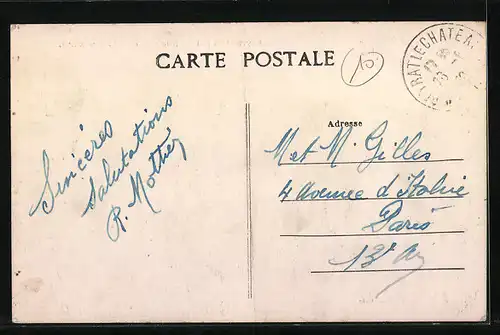 CARTE POSTALE
10
PEYRAT LE CHATEAU
Sincères
salutations
R. Mothier
Adresse
M et M. Gilles
4 Avenue d'Italie
Paris
13e Ar